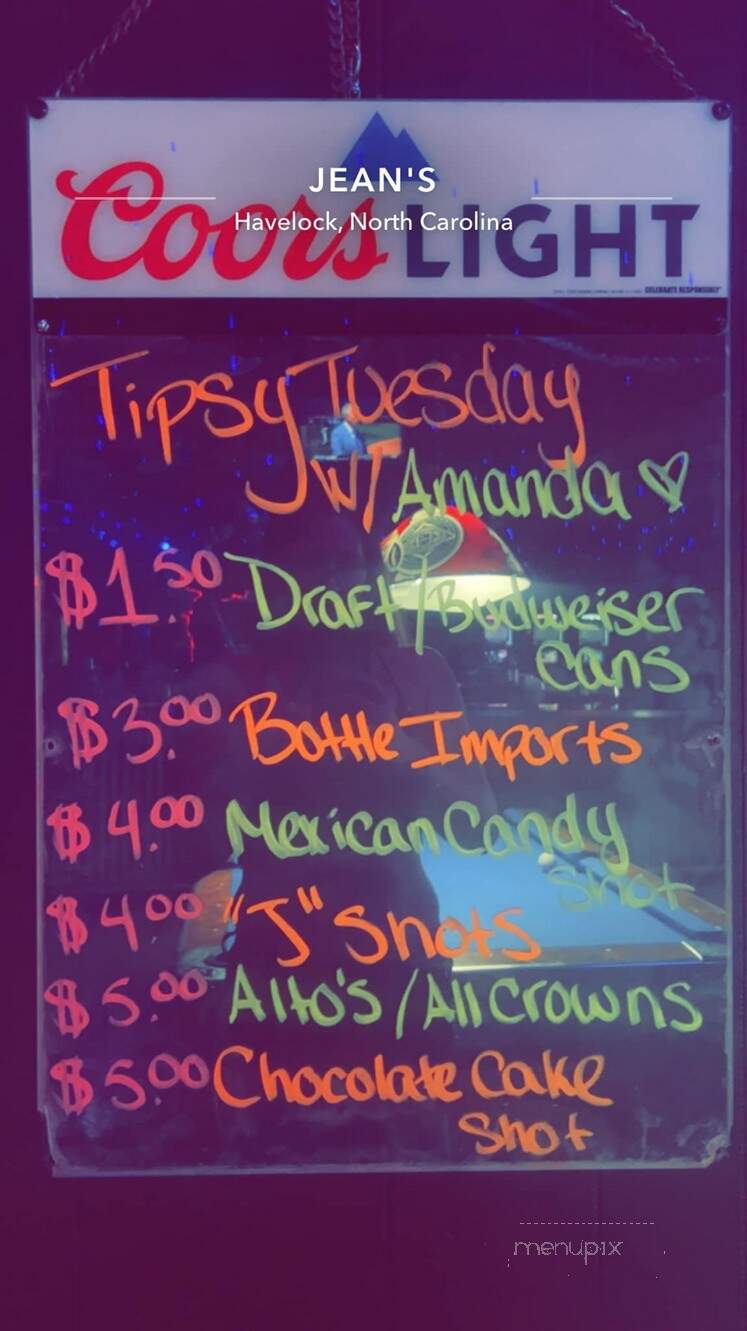 JEAN'S
Havelock, North Carolina
Coors LIGHT
CELEBRATE RESPONSIBLY
Tipsy Tuesday
W/ Amanda
$1.50 Draft/Budweiser
Cans
$3.00 Bottle Imports
$4.00 Mexican Candy
Shot
$4.00 "J" Shots
$5.00 Alto's/All Crowns
$5.00 Chocolate Cake
Shot
menupix